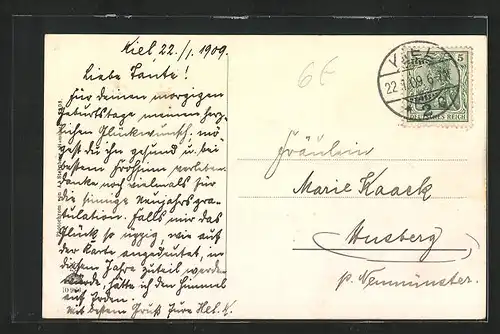 Kiel, 22./1. 1909.
Liebe Tante!
Für deinen morgigen
Geburtstage meinen herz-
lichen Glückwunsch. mö-
gest du ihn gesund u. bei
bestem Frohsinn verleben.
Danke noch vielmals für
die sinnige Neujahrsgra-
tulation. Falls mir das
Glück so üppig, wie auf
der Karte angedeutet, in
diesem Jahre zuteil werden
würde, hätte ich den Himmel
auf Erden.
Mit bestem Gruß Eure Hel. K.
6€
KIEL
22.1.09
5
DEUTSCHES REICH
Fräulein
Marie Kaack
Husberg
p. Neumünster.